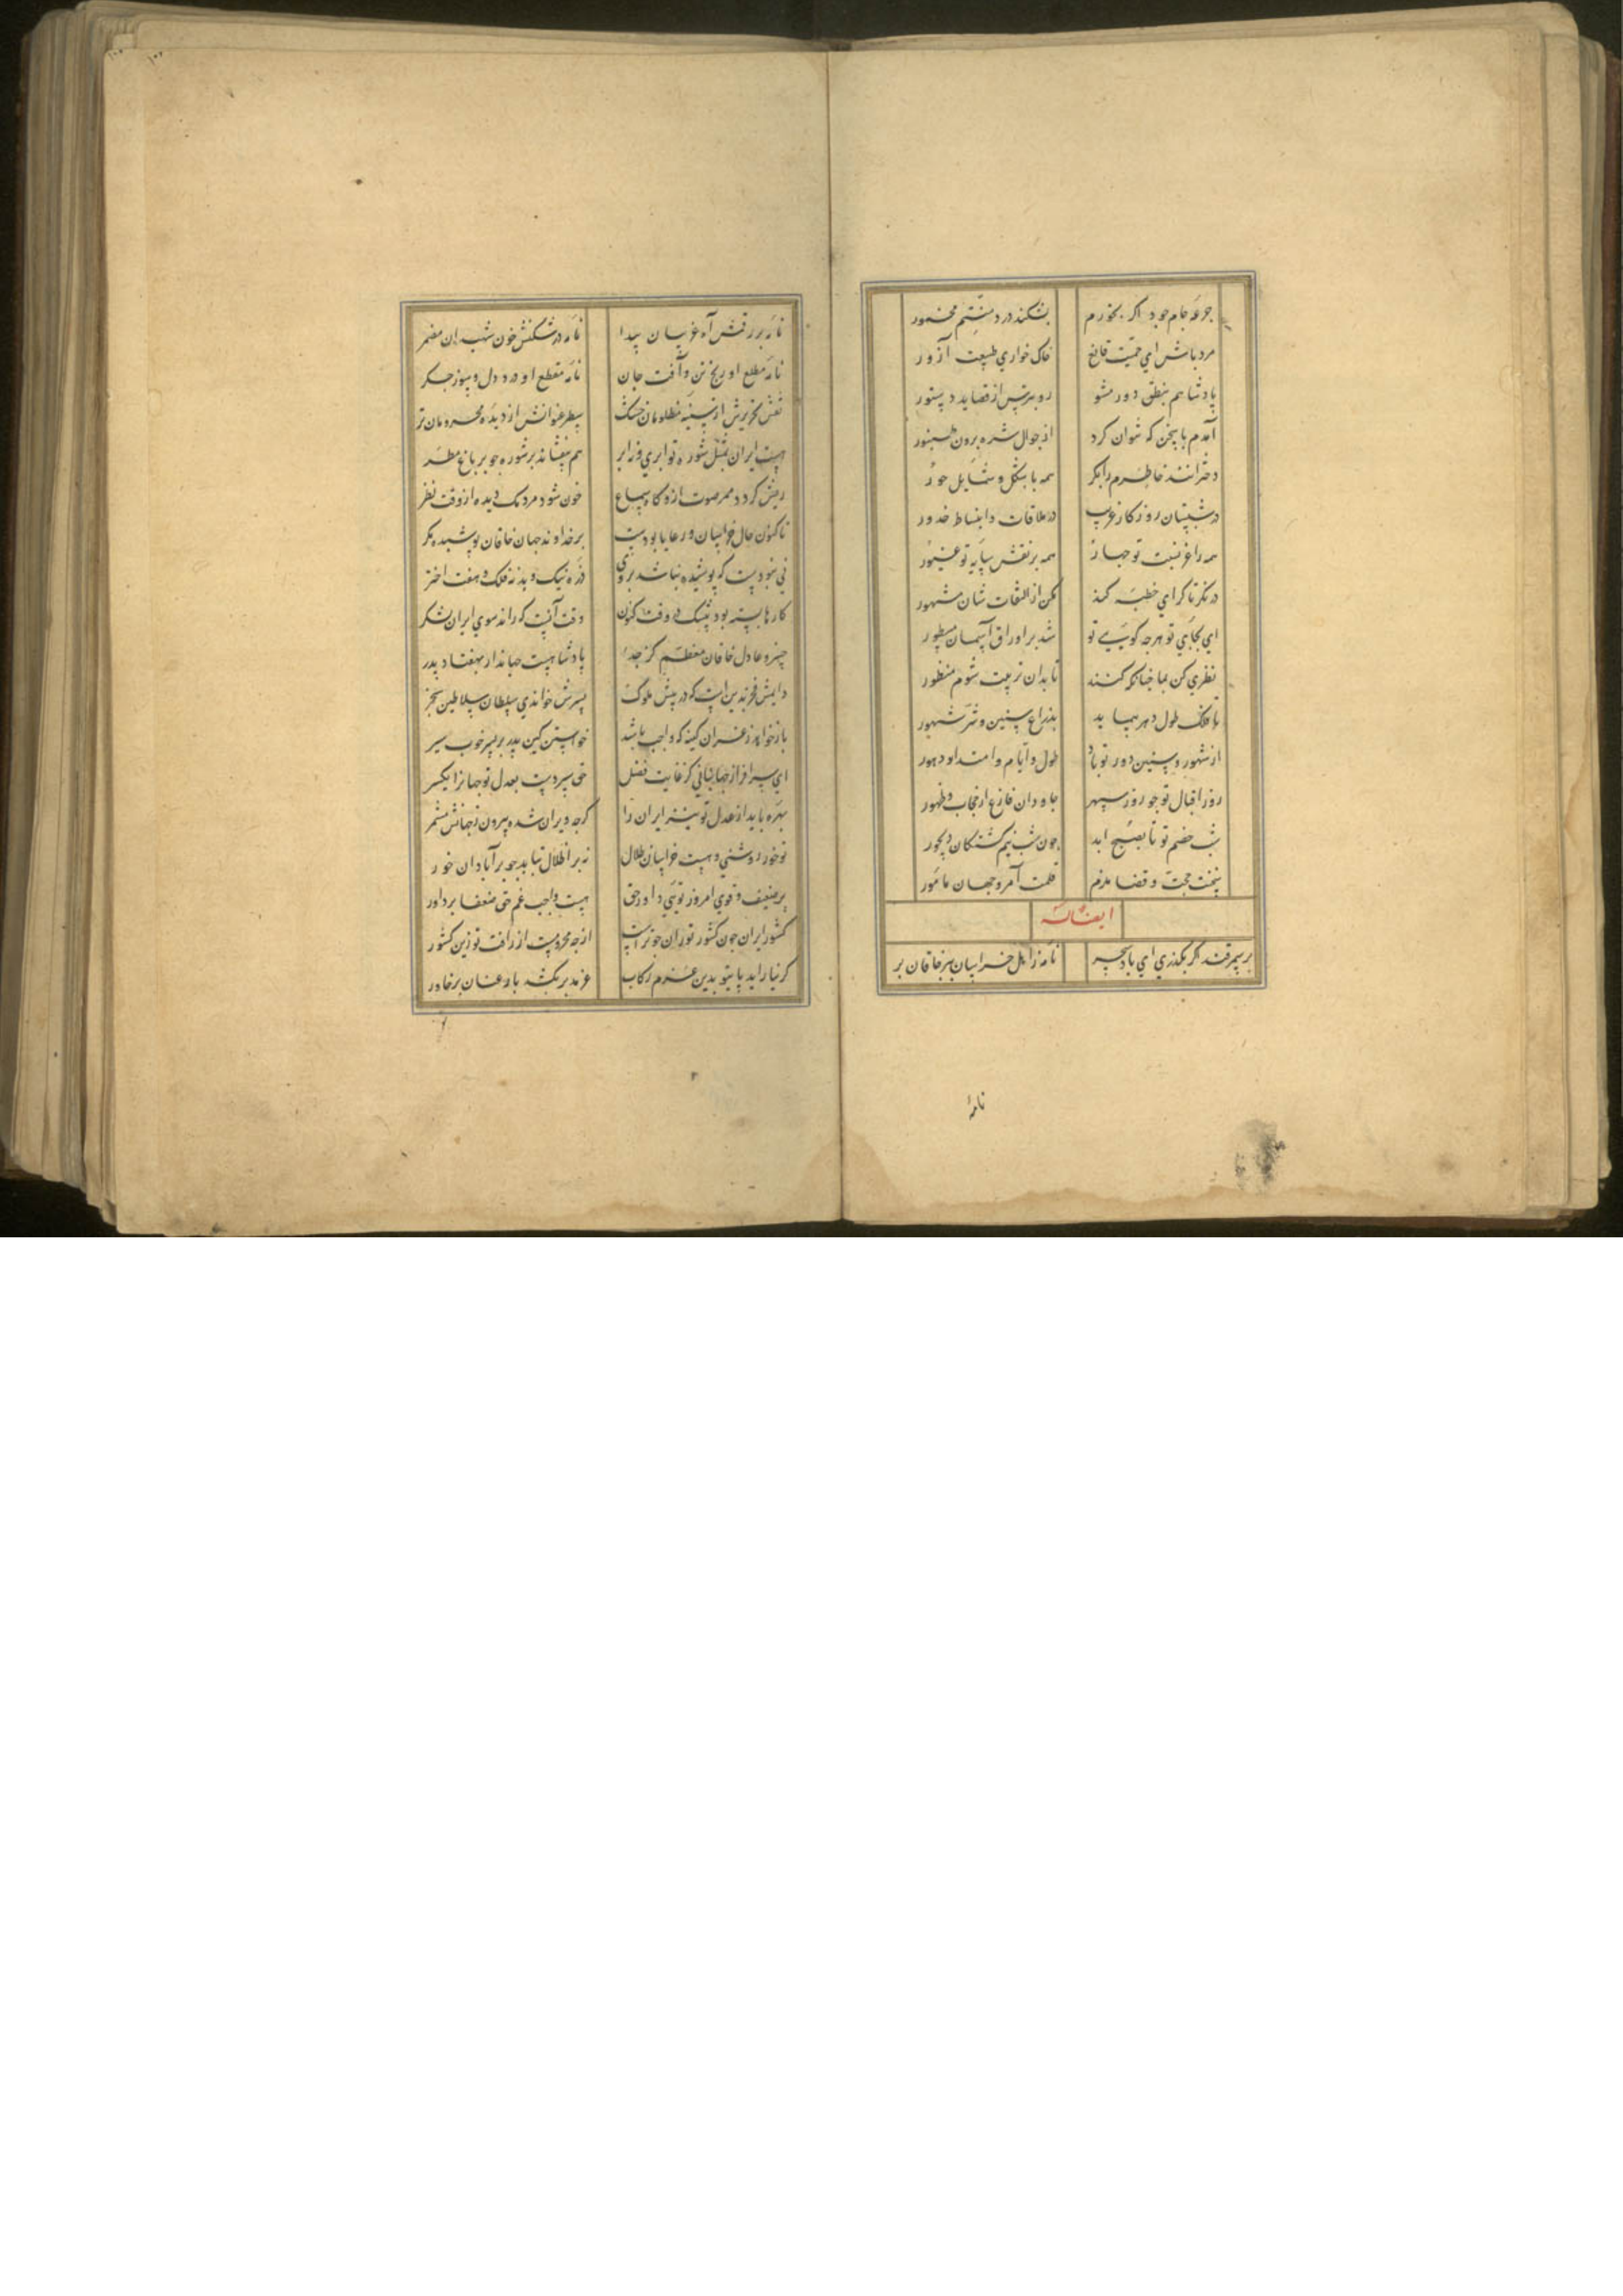 جرعهٔ جام جود اکر بخورم بشکند در دسیتم مخمور
مرد باش ای حمیت قانع خاک خواری طبیعت آزور
پادشاهم بنطق دور مشو رو بترس از قصاید دستور
آمدم با سخن که نتوان کرد از جوال شره برون طنبور
دخترانند خاطرم را بکر همه با شکل و شمایل حور
در شبستان روزکار غریب در ملاقات و انبساط خدور
همه را غز نسبت تو جهاز همه بر نقش سایه تو غیور
درنکر تا کرای خطبه کند مکن از التفات شان مشهور
ای بجای تو هرجه کویی تو شد بر اوراق آسمان مسطور
نظری کن بما جنانکه کنند تا بدان تربیت شوم منظور
تا فلک طول دهر پیماید بذراع سنین و شبر شهور
از شهور و سنین دور تو باد طول و ایام و امتداد دهور
روز اقبال تو جو روز سپهر جاودان فارغ از حجاب و ظهور
شب خصم تو تا بصبح ابد جون شب نیم کشتکان دیجور
بخت محبت و قضا ملزم قلمت آمر و جهان مامور
ایضاله
بر سمرقند اکر بکذری ای باد سحر نامه زاهل خراسان ببر خاقان بر
نامهٔ
نامه بر رقمش آه غریبان پیدا نامه در شکنش خون شهیدان مضمر
نامه مطلع او رنج تن و آفت جان نامه مقطع او درد دل و سوز جکر
نقش تحریرش از سینه مظلومان خشک سطر عنوانش از دیده محرومان تر
هست ایران بمثل شوره تو ابری و زابر هم بیفشاند بر شوره جو بر باغ مطر
ریش کردد ممر صوت ازو کاه سماع خون شود مردمک دیده ازو وقت نظر
تا کنون حال خراسان و رعایا بودست بر خداوند جهان خاقان پوشیده مکر
نی نبودست که پوشیده نباشد بر وی ذره نیک و بد نه فلک و هفت اختر
کارها بسته بود بیشک در وقت کنون وقت آنست که راند سوی ایران لشکر
خسرو عادل خاقان معظم کز جد پادشاهست جهاندار بهفتاد پدر
دایمش فخر بدین است که در پیش ملوک پسرش خواندی سلطان سلاطین سنجر
باز خواهد ز غزان کینه که واجب باشد خواستن کین پدر بر پسر خوب سیر
ای سرافراز جهانبانی کز غایت فضل حق سپردست بعدل تو جهانرا یکسر
بهره باید از عدل تو نیز ایران را کرجه ویران شده بیرون ز جهانش مشمر
تو خور روشنی و هست خراسان طلال نه بر اطلال بتابد جو بر آبادان خور
بر ضعیف و قوی امروز تویی داور حق هست واجب غم حق ضعفا بر داور
کشور ایران جون کشور توران جو تراست از جه محرومست از رافت تو زین کشور
کر نیاراید پای تو بدین عزم رکاب غز مدبر نکشد باز عنان بر خاور